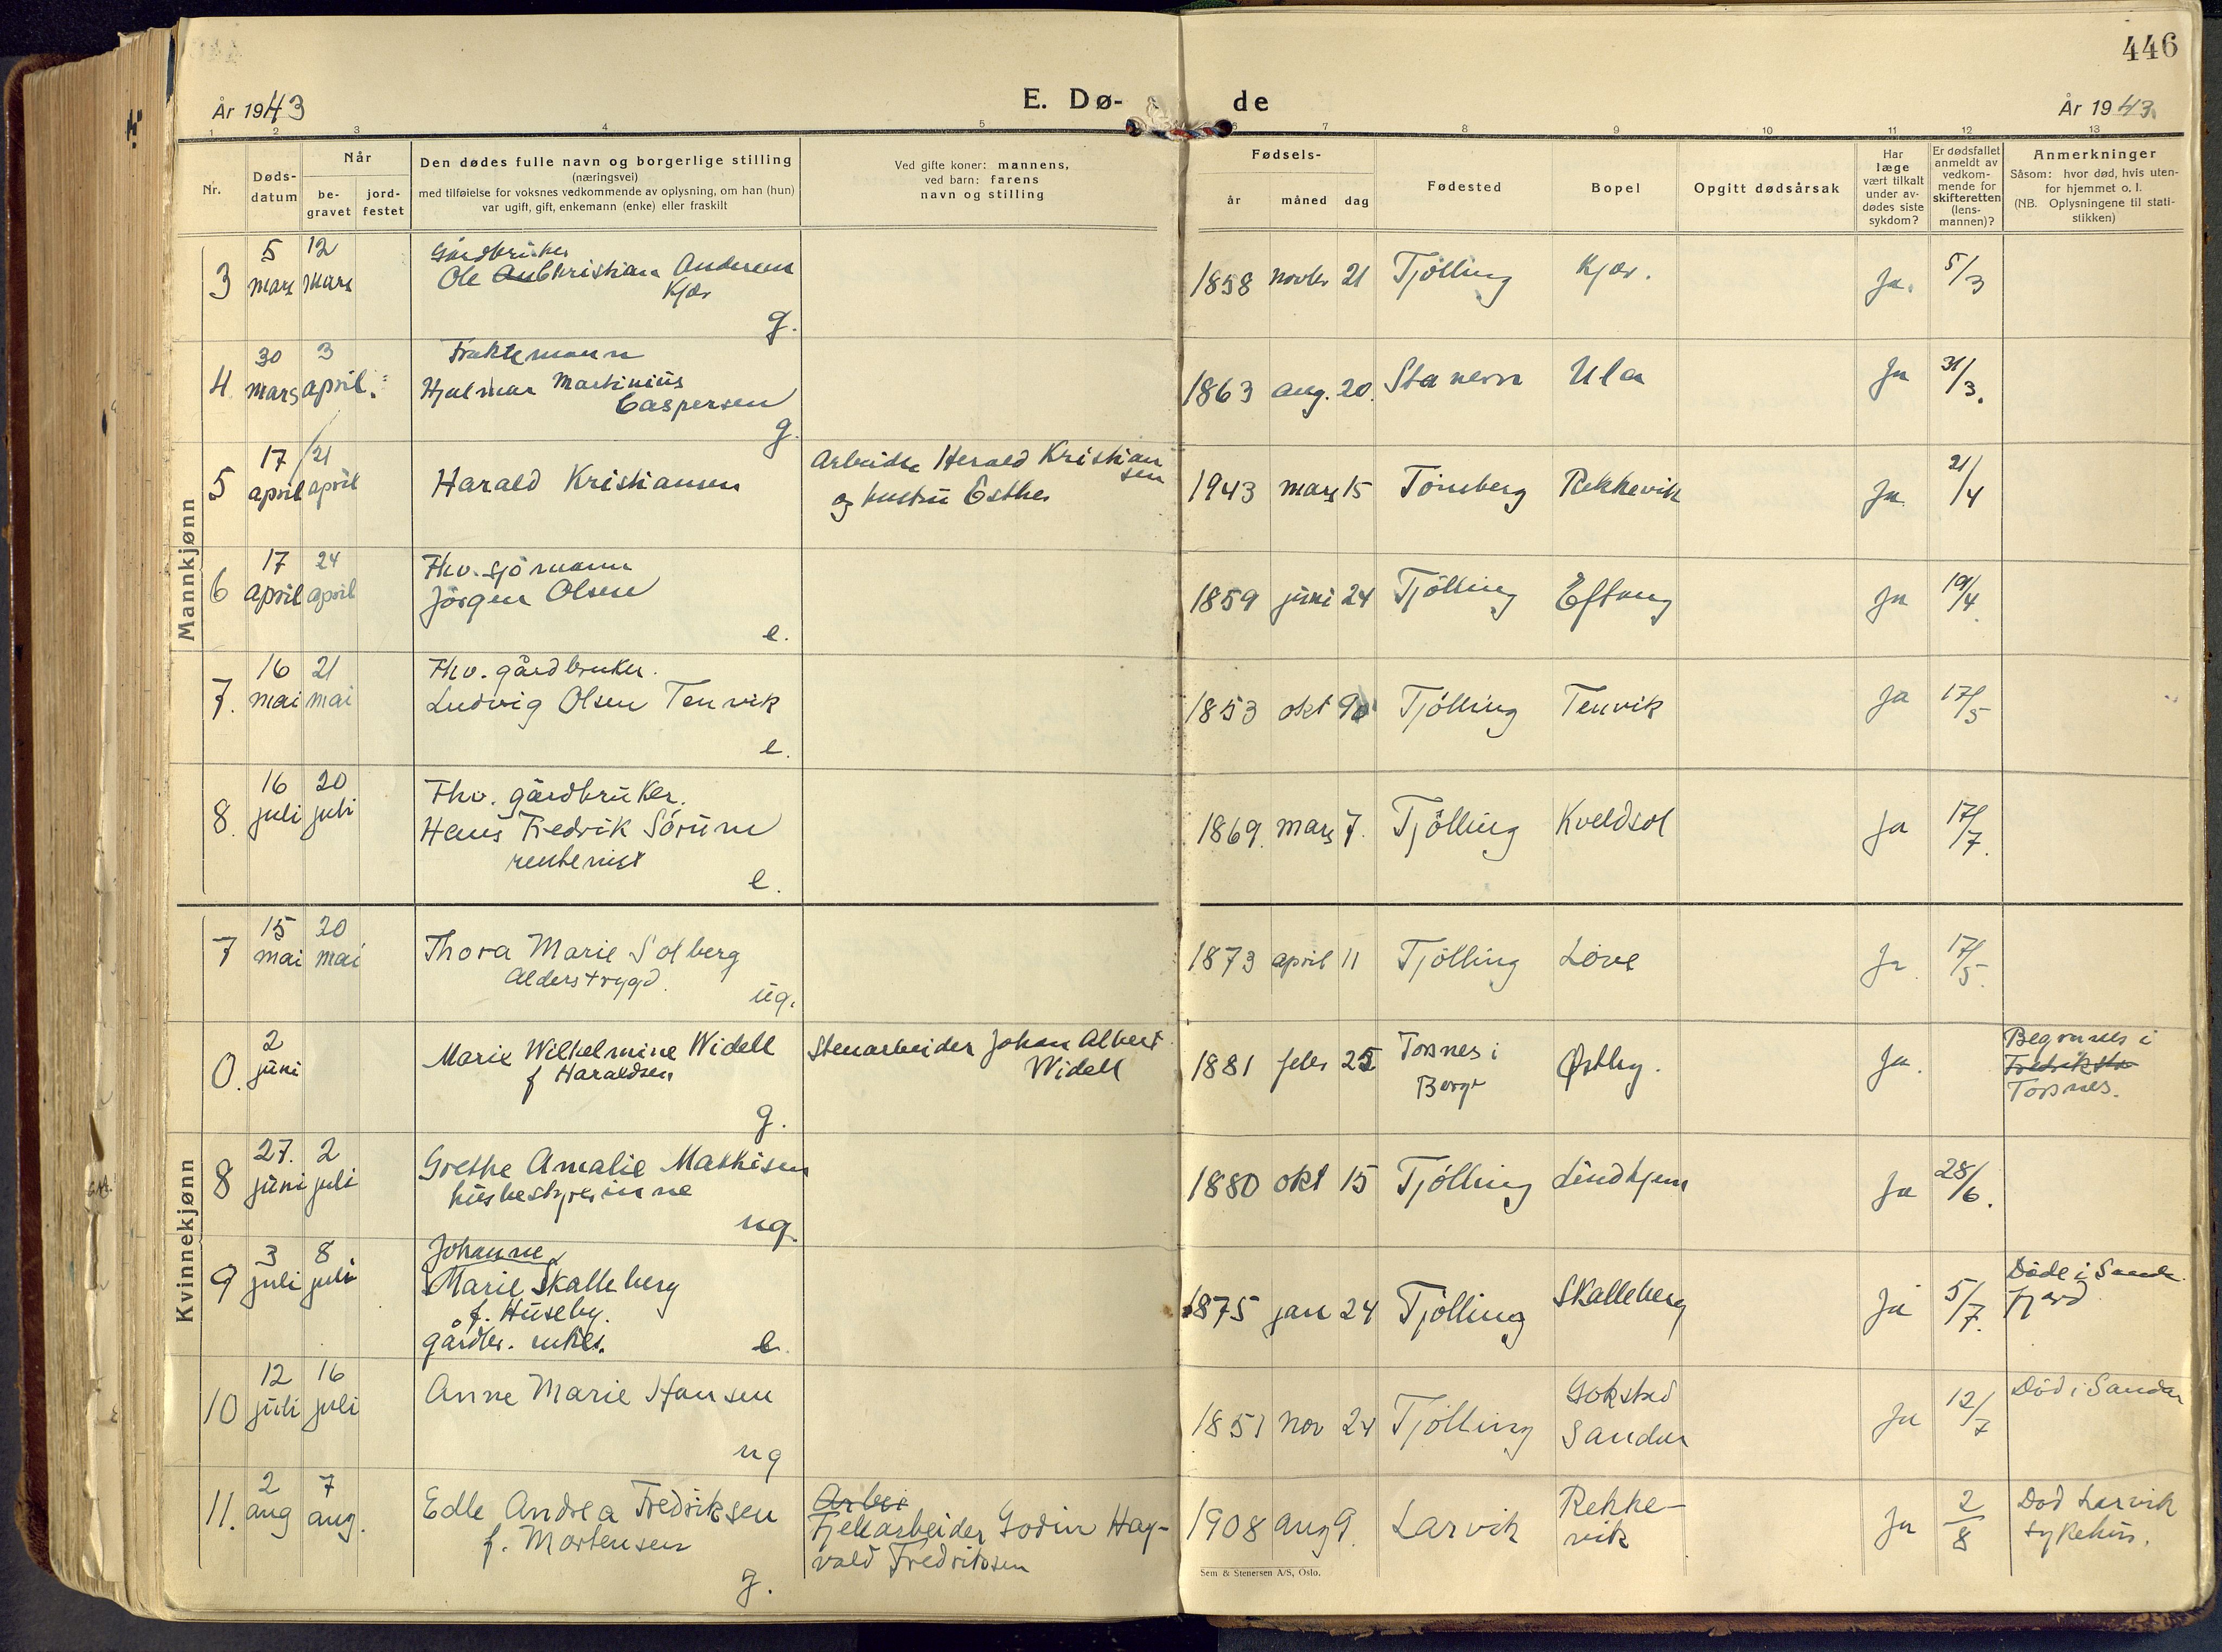 446
År 1943
E. Dø- de
År 1943.
1 2 3 4 5 6 7 8 9 10 11 12 13
Nr.
Døds-
datum
Når
be-
gravet
jord-
festet
Den dødes fulle navn og borgerlige stilling
(næringsvei)
med tilføielse for voksnes vedkommende av oplysning, om han (hun)
var ugift, gift, enkemann (enke) eller fraskilt
Ved gifte koner: mannens,
ved barn: farens
navn og stilling
Fødsels-
år måned dag
Fødested
Bopel
Opgitt dødsårsak
Har
læge
vært tilkalt
under av-
dødes siste
sykdom?
Er dødsfallet
anmeldt av
vedkom-
mende for
skifteretten
(lens-
mannen)?
Anmerkninger
Såsom: hvor død, hvis uten-
for hjemmet o. l.
(NB. Oplysningene til stati-
stikken)
Mannkjønn
3
5 mars
12 mars
Gårdbruker
Ole Kristian Andersen
Kjær
g.
1858 novbr 21 Tjölling Kjær. Ja. 5/3
4
30 mars
3 april.
Fraktemann
Hjalmar Martinius
Caspersen
g.
1863 aug. 20. Stavern Ula Ja 31/3.
5
17 april
21 april
Harald Kristiansen
Arbeider Herald Kristian
sen
og hustru Esther
1943 mars 15 Tönsberg Rekkevik Ja 21/4
6
17 april
24 april
Fhv. sjömann
Jörgen Olsen
e.
1859 juni 24 Tjölling Eftang Ja 19/4.
7.
16 mai
21 mai
Fhv. gårdbruker.
Ludvig Olsen Tenvik
e.
1853 okt Tjölling Tenvik Ja 17/5
8.
16 juli
20 juli
Fhv. gårdbruker.
Hans Fredrik Sörum
rentenist
e.
1869. mars 7. Tjölling Kveldsol Ja 17/7.
Kvinnekjønn
7
15 mai
20 mai
Thora Marie Solberg
Alderstrygd.
ug.
1873 april 11 Tjölling Löve Ja 17/5.
0.
2 juni
Marie Wilhelmine Widell
f Haraldsen
g.
Stenarbeider Johan Albert
Widell
1881 febr 25 Torsnes i
Borge
Østby. Ja.
Begravnes i
Fredriksta
Torsnes.
8
27. juni
2 juli
Grethe Amalie Mathisen
husbestyrerinne
ug.
1880 okt 15 Tjölling Lindhjem Ja 28/6.
9
3 juli
8 juli
Johanne
Marie Skalleberg
f. Huseby.
gårdbr. enke.
e.
1875 jan 24 Tjölling Skalleberg Ja 5/7.
Döde i Sande
fjord
10
12 juli
16 juli
Anne Marie Hansen
ug
1851 nov 24 Tjölling Gokstad
Sandar
Ja 12/7
Död i Sandar
11.
2 aug
7 aug.
Edle Andrea Fredriksen
f. Mortensen
g.
Arbei
Fjellarbeider Godin Hag-
vald Fredriksen
1908 aug 9. Larvik Rekke-
vik
Ja 2/8
Död Larvik
sykehus.
Sem & Stenersen A/S, Oslo.